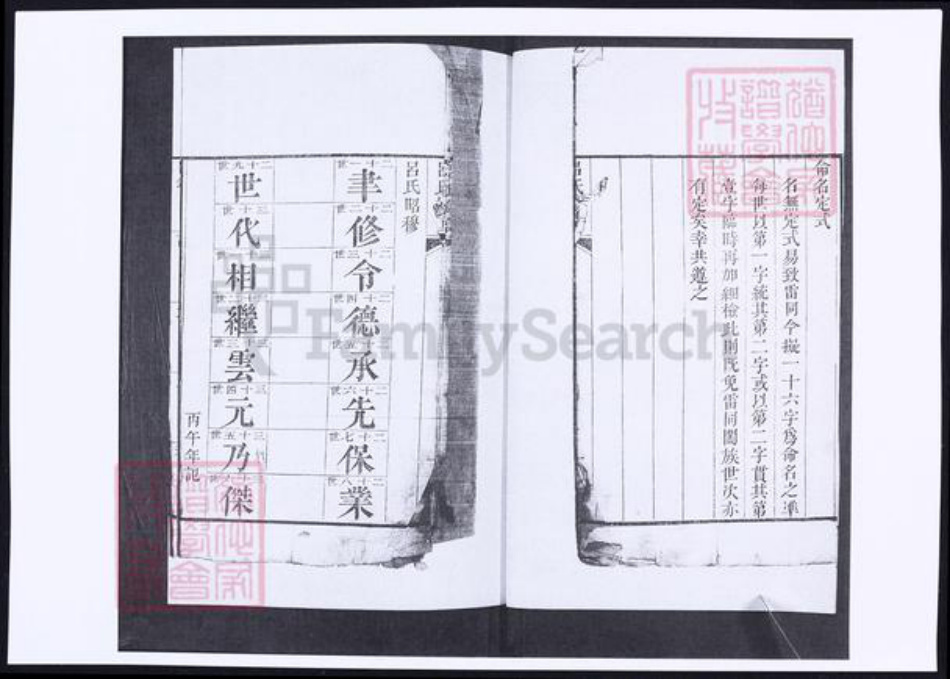 命名定式
名無定式易致雷同今擬一十六字為命名之準
每世以第一字統其第二字或以第二字貫其第
壹字臨時再加細檢此則既免雷同闔族世次亦
有定矣幸共遵之
呂氏
呂氏昭穆
二十一世
聿
二十二世
修
二十三世
令
二十四世
德
二十五世
承
二十六世
先
二十七世
保
二十八世
業
二十九世
世
三十世
代
相
繼
三十三世
雲
三十四世
元
三十五世
乃
傑
丙午年記
FamilySearch